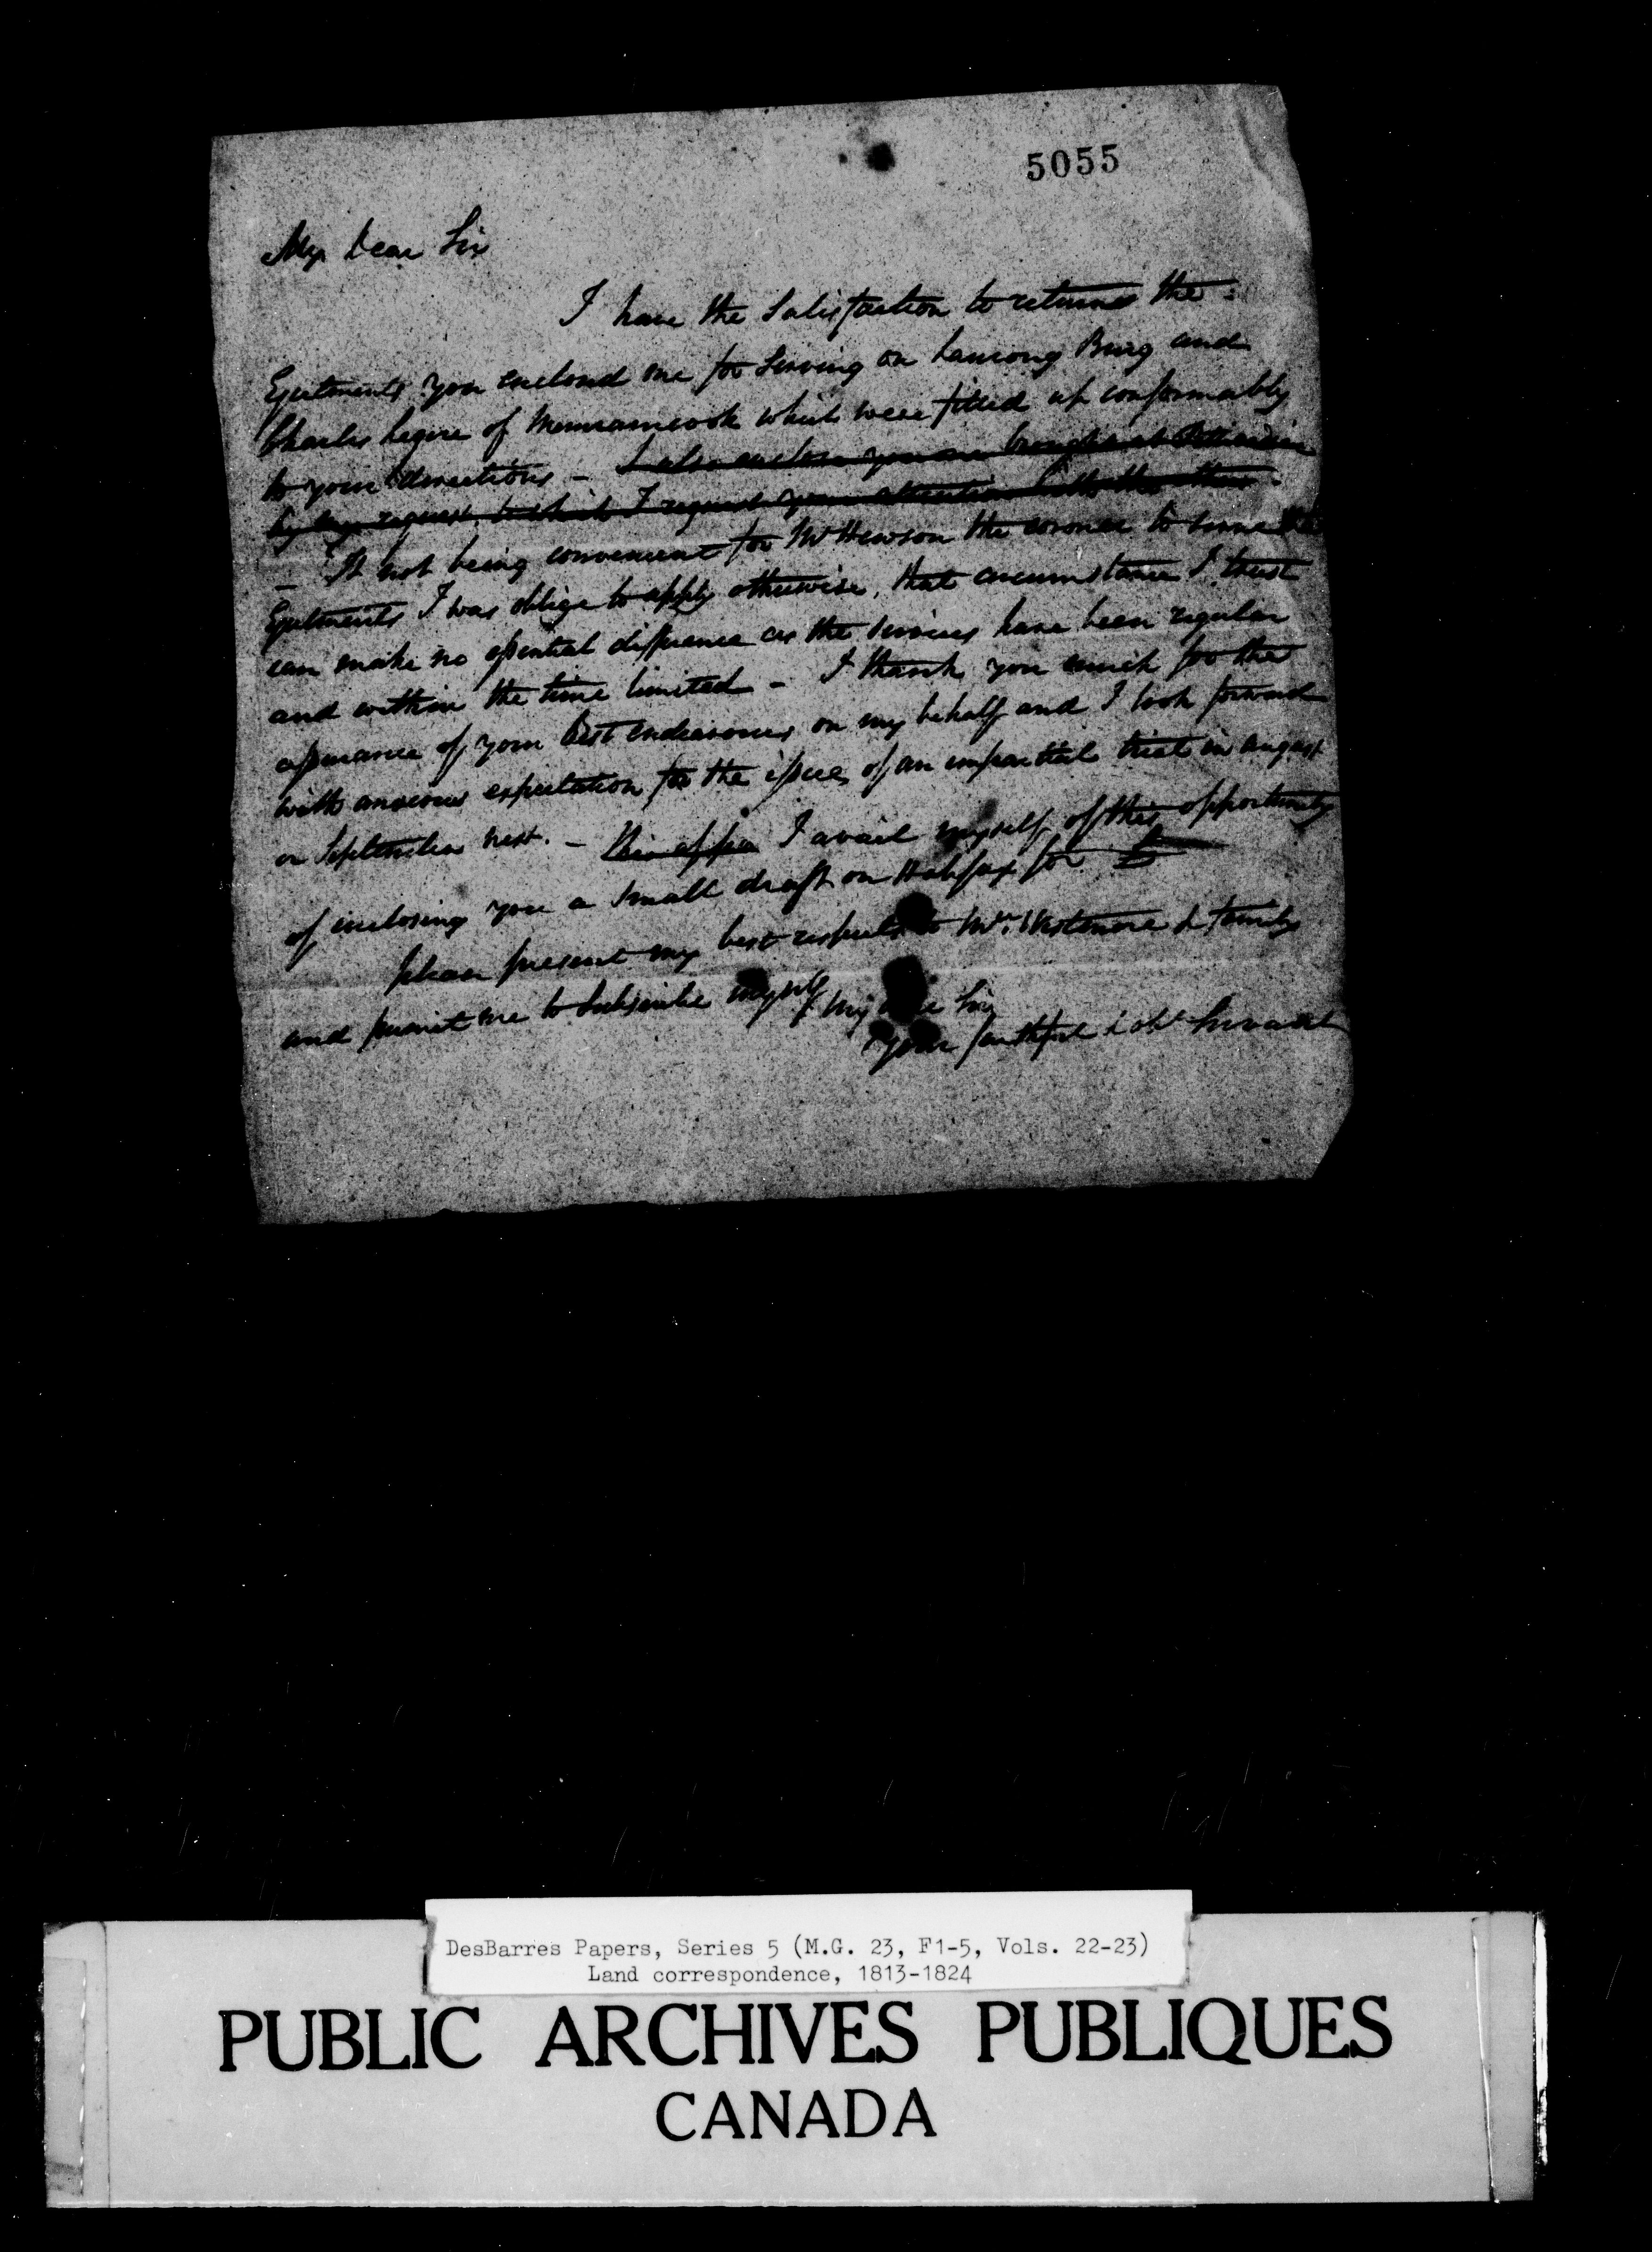 5055
My Dear Sir
I have the Satisfaction to return the
Ejectments you enclosed me for Serving on Bung and
Charles Legere of Memramcook which were filled up conformably
to your directions - I also enclose you an brought at
by my request, to which I request your attention
- It not being convenient for Mr Hewson the coroner to serve the
Ejectments I was oblige to apply otherwise, that circumstance I trust
can make no essential difference as the services have been regular
and within the time limited - I thank you much for the
assurance of your best endeavours on my behalf and I look forward
with anxious expectation for the issue of an impartial trial in august
or September next. - I avail myself of this opportunity
of inclosing you a small draft on Halifax for £
please present my best respects to Mrs. Westmore & family
and permit me to subscribe myself my dear Sir
Your faithful & obt Servant
DesBarres Papers, Series 5 (M.G. 23, F1-5, Vols. 22-23)
Land correspondence, 1813-1824
PUBLIC ARCHIVES PUBLIQUES
CANADA